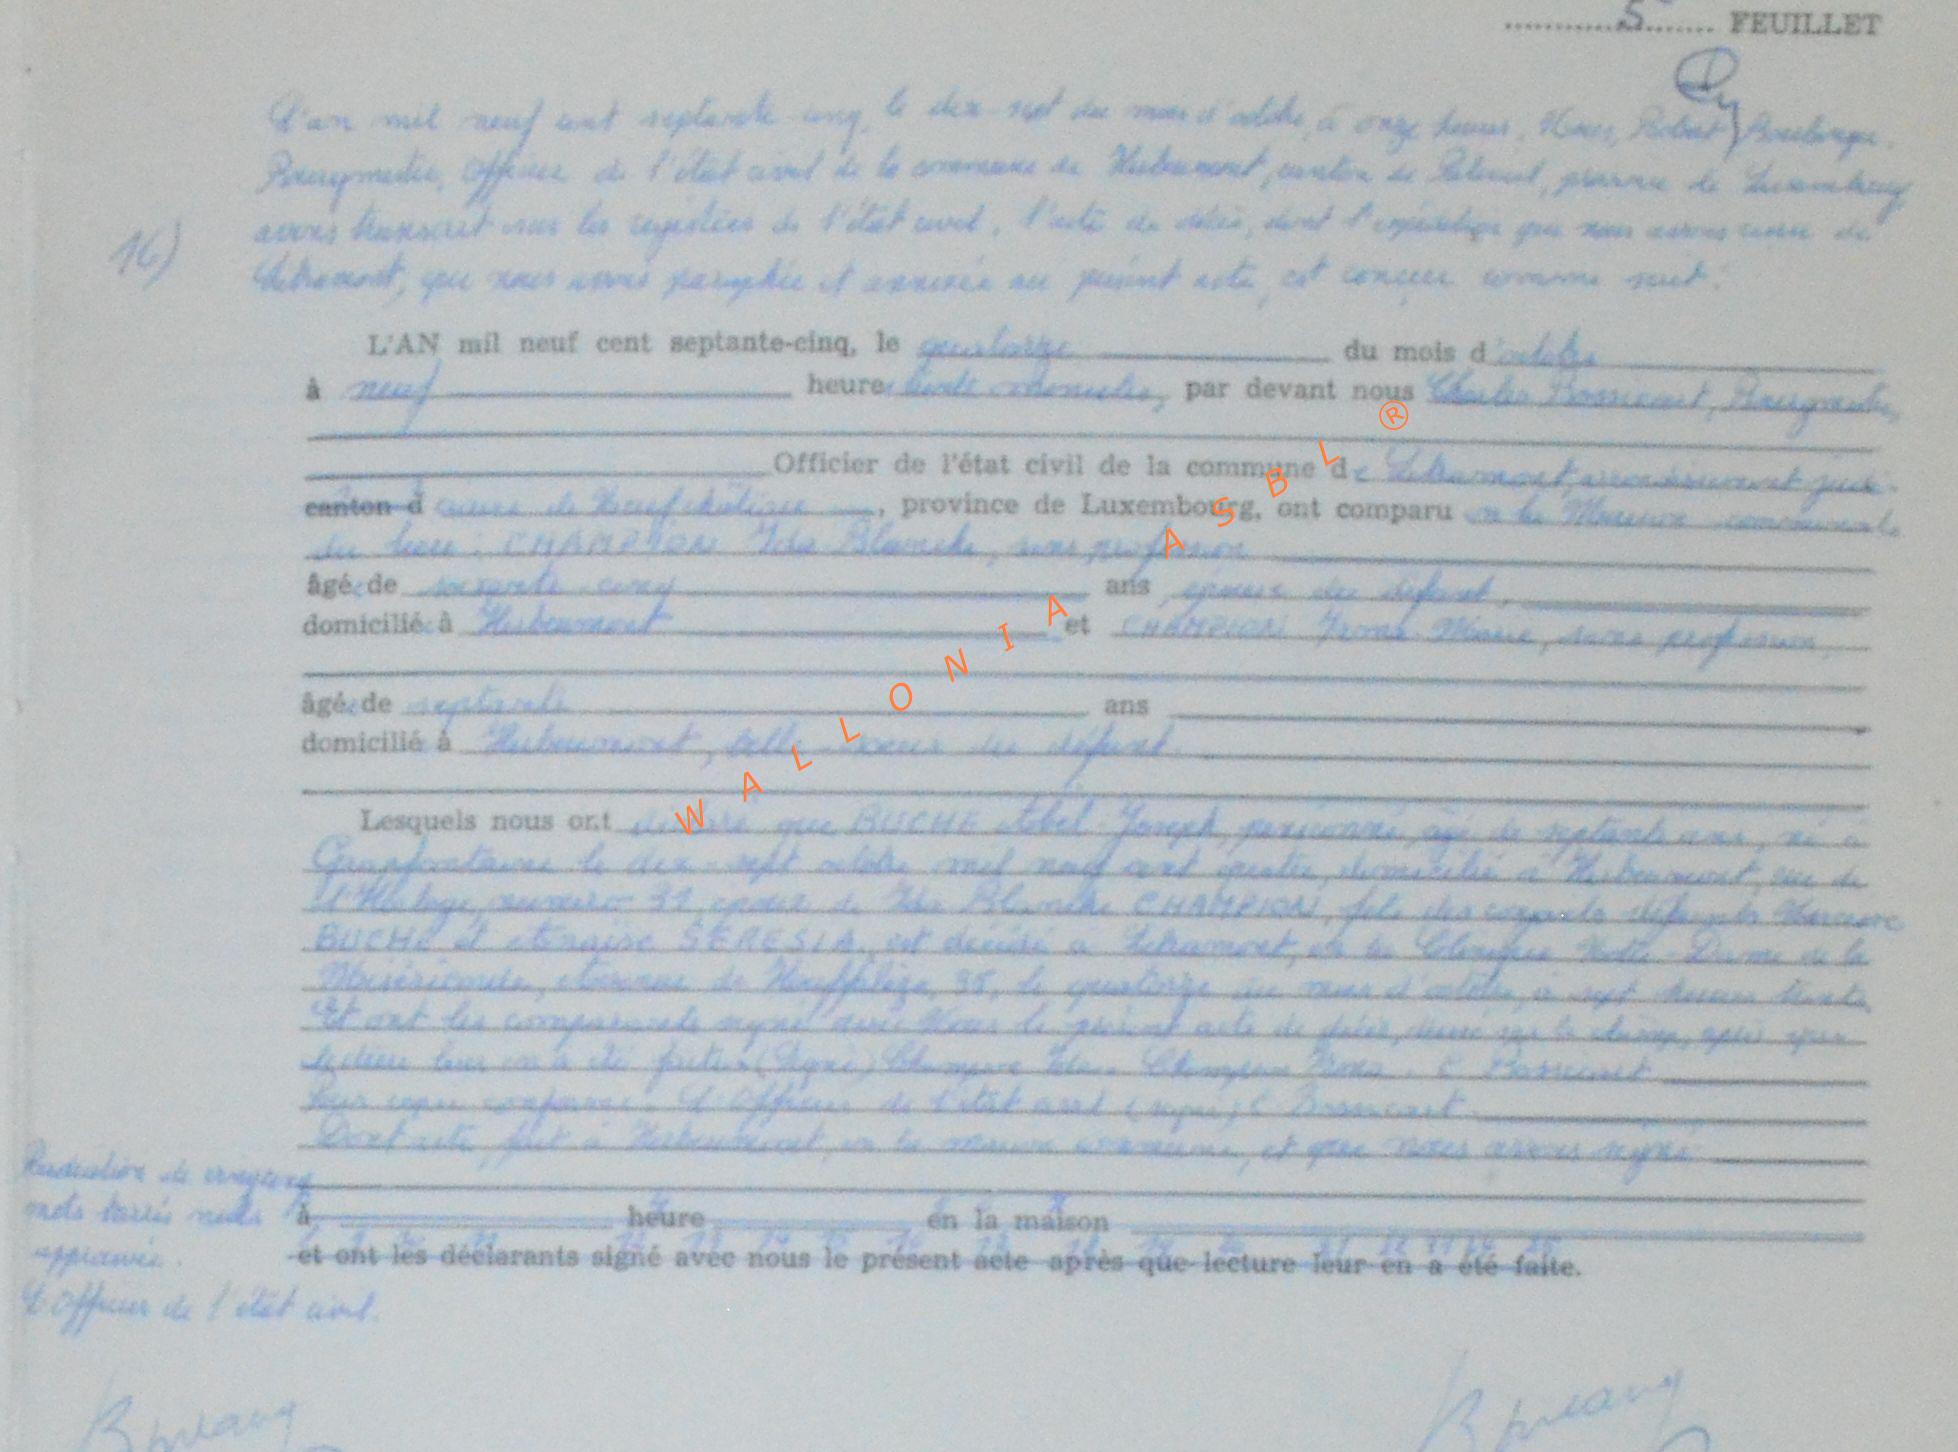 5e FEUILLET
L'an mil neuf cent septante cinq, le dix-sept du mois d'octobre, à onze heures, Nous, Robert Boulanger,
Bourgmestre, Officier de l'état civil de la commune de Herbeumont, canton de Paliseul, province de Luxembourg
avons transcrit sur les registres de l'état civil, l'acte de décès, dont l'expédition que nous avons reçue de
16)
Libramont, que nous avons paraphée et annexée au présent acte, est conçue comme suit :
L'AN mil neuf cent septante-cinq, le quatorze du mois d'octobre
à neuf heures trente minutes, par devant nous Charles Bossicart, Bourgmestre,
Officier de l'état civil de la commune de Libramont, arrondissement judi-
canton d ciaire de Neufchâteau, province de Luxembourg, ont comparu en la Maison communale
du lieu : CHAMPION Ida Blanche, sans profession
âgée de soixante cinq ans, épouse du défunt,
domiciliée à Herbeumont et CHAMPION Irma Marie, sans profession,
âgée de septante ans
domiciliée à Herbeumont, belle-soeur du défunt.
Lesquels nous ont déclaré que BUCHE Abel Joseph, pensionné, âgé de septante ans, né à
Grapfontaine le dix-sept octobre mil neuf cent quatre, domicilié à Herbeumont, rue de
numéro 31, époux de Ida Blanche CHAMPION, fils des conjoints défunts
BUCHE et SERESIA, est décédé à Libramont, en la Clinique Notre-Dame de la
Miséricorde, Avenue de Houffalize, 35, le quatorze du mois d'octobre, à sept heures trente
Et ont les comparants signé avec Nous le présent acte de décès, dressé sur le champ, après que
lecture leur en a été faite. (Signé) Champion Ida. Champion Irma. C. Bossicart
Pour copie conforme. L'Officier de l'état civil (signé) C. Bossicart.
Dont acte, fait à Herbeumont, en la maison communale, et que nous avons signé
Radiation de vingt cinq
mots barrés nuls
à heure en la maison
approuvée.
et ont les déclarants signé avec nous le présent acte après que lecture leur en a été faite.
L'Officier de l'état civil.
WALLONIA ASBL ®